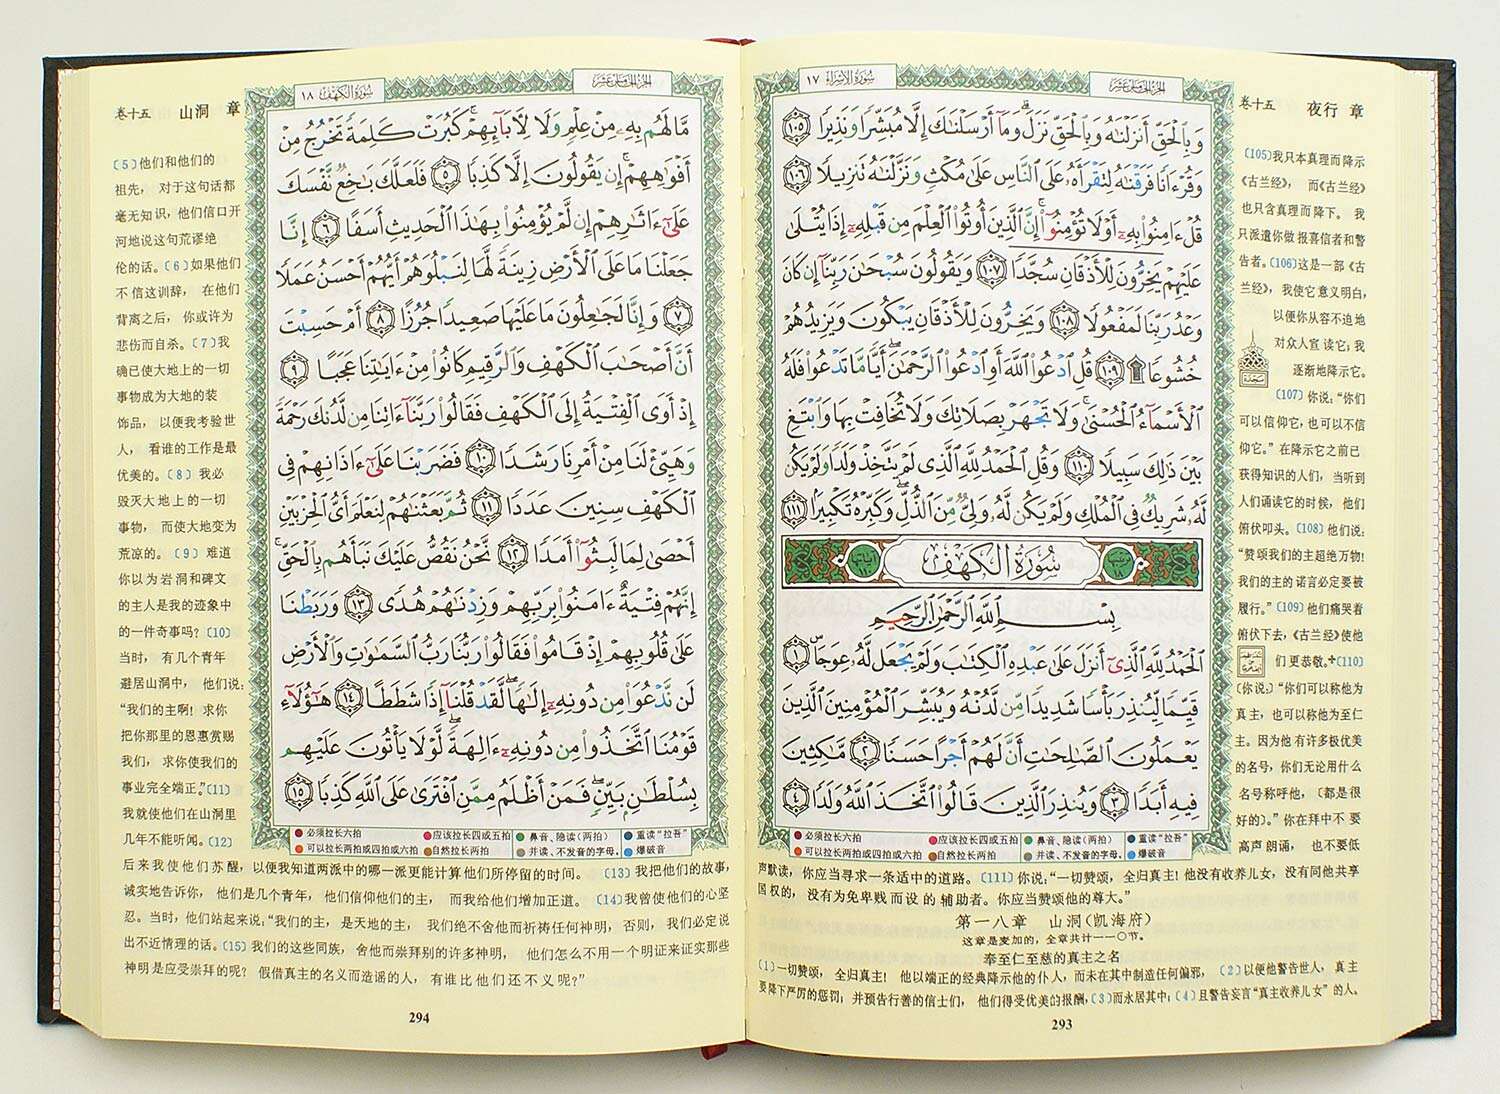 سورة الإسراء ١٧
الجزء الخامس عشر
وَبِالْحَقِّ أَنزَلْنَاهُ وَبِالْحَقِّ نَزَلَ وَمَا أَرْسَلْنَاكَ إِلَّا مُبَشِّرًا وَنَذِيرًا ١٠٥
وَقُرْءَانًا فَرَقْنَاهُ لِتَقْرَأَهُ عَلَى النَّاسِ عَلَى مُكْثٍ وَنَزَّلْنَاهُ تَنزِيلًا ١٠٦
قُلْ ءَامِنُوا بِهِ أَوْ لَا تُؤْمِنُوا إِنَّ الَّذِينَ أُوتُوا الْعِلْمَ مِن قَبْلِهِ إِذَا يُتْلَى
عَلَيْهِمْ يَخِرُّونَ لِلْأَذْقَانِ سُجَّدًا ١٠٧ وَيَقُولُونَ سُبْحَانَ رَبِّنَا إِن كَانَ
وَعْدُ رَبِّنَا لَمَفْعُولًا ١٠٨ وَيَخِرُّونَ لِلْأَذْقَانِ يَبْكُونَ وَيَزِيدُهُمْ
خُشُوعًا ۩ ١٠٩ قُلِ ادْعُوا اللَّهَ أَوِ ادْعُوا الرَّحْمَٰنَ أَيًّا مَّا تَدْعُوا فَلَهُ
الْأَسْمَاءُ الْحُسْنَى وَلَا تَجْهَرْ بِصَلَاتِكَ وَلَا تُخَافِتْ بِهَا وَابْتَغِ
بَيْنَ ذَٰلِكَ سَبِيلًا ١١٠ وَقُلِ الْحَمْدُ لِلَّهِ الَّذِي لَمْ يَتَّخِذْ وَلَدًا وَلَمْ يَكُن
لَّهُ شَرِيكٌ فِي الْمُلْكِ وَلَمْ يَكُن لَّهُ وَلِيٌّ مِّنَ الذُّلِّ وَكَبِّرْهُ تَكْبِيرًا ١١١
سُورَةُ الْكَهْفِ
بِسْمِ اللَّهِ الرَّحْمَٰنِ الرَّحِيمِ
الْحَمْدُ لِلَّهِ الَّذِي أَنزَلَ عَلَى عَبْدِهِ الْكِتَابَ وَلَمْ يَجْعَل لَّهُ عِوَجًا ١
قَيِّمًا لِّيُنذِرَ بَأْسًا شَدِيدًا مِّن لَّدُنْهُ وَيُبَشِّرَ الْمُؤْمِنِينَ الَّذِينَ
يَعْمَلُونَ الصَّالِحَاتِ أَنَّ لَهُمْ أَجْرًا حَسَنًا ٢ مَّاكِثِينَ
فِيهِ أَبَدًا ٣ وَيُنذِرَ الَّذِينَ قَالُوا اتَّخَذَ اللَّهُ وَلَدًا ٤
必须拉长六拍 应该拉长四或五拍 鼻音、隐读(两拍) 重读"拉吾"
可以拉长两拍或四拍或六拍 自然拉长两拍 并读、不发音的字母。 爆破音
卷十五 夜行 章
(105)我只本真理而降示
《古兰经》, 而《古兰经》
也只含真理而降下。 我
只派遣你做 报喜信者和警
告者。(106)这是一部《古
兰经》, 我使它意义明白,
以便你从容不迫地
对众人宣 读它; 我
逐渐地降示它。
(107)你说:"你们
可以信仰它, 也可以不信
仰它。" 在降示它之前已
获得知识的人们, 当听到
人们诵读它的时候, 他们
俯伏叩头。(108)他们说:
"赞颂我们的主超绝万物!
我们的主的 诺言必定要被
履行。"(109)他们痛哭着
俯伏下去,《古兰经》使他
们 更恭敬。+(110)
〔你说:〕"你们可以称他为
真主, 也可以称他为至仁
主。因为他 有许多极优美
的名号, 你们无论用什么
名号称呼他, 〔都是很
好的〕。" 你在拜中不 要
高声 朗诵, 也不要低
声默读, 你应当寻求一条适中的道路。(111)你说:"一切赞颂, 全归真主! 他没有收养儿女, 没有同他共享
国权的, 没有为免卑贱 而设 的 辅助者。你应当赞颂他的尊大。"
第一八章 山洞(凯海府)
这章是麦加的, 全章共计一一〇节。
奉至仁至慈的真主之名
(1)一切赞颂, 全归真主! 他以端正的经典降示他的仆人, 而未在其中制造任何偏邪, (2)以便他警告世人, 真主
要降下严厉的惩罚; 并预告行善的信士们, 他们得受优美的报酬,(3)而永居其中;(4)且警告妄言"真主收养儿女"的人。
293
سورة الكهف ١٨
الجزء الخامس عشر
مَّا لَهُم بِهِ مِنْ عِلْمٍ وَلَا لِآبَائِهِمْ كَبُرَتْ كَلِمَةً تَخْرُجُ مِنْ
أَفْوَاهِهِمْ إِن يَقُولُونَ إِلَّا كَذِبًا ٥ فَلَعَلَّكَ بَاخِعٌ نَّفْسَكَ
عَلَى ءَاثَارِهِمْ إِن لَّمْ يُؤْمِنُوا بِهَٰذَا الْحَدِيثِ أَسَفًا ٦ إِنَّا
جَعَلْنَا مَا عَلَى الْأَرْضِ زِينَةً لَّهَا لِنَبْلُوَهُمْ أَيُّهُمْ أَحْسَنُ عَمَلًا
٧ وَإِنَّا لَجَاعِلُونَ مَا عَلَيْهَا صَعِيدًا جُرُزًا ٨ أَمْ حَسِبْتَ
أَنَّ أَصْحَابَ الْكَهْفِ وَالرَّقِيمِ كَانُوا مِنْ ءَايَاتِنَا عَجَبًا ٩
إِذْ أَوَى الْفِتْيَةُ إِلَى الْكَهْفِ فَقَالُوا رَبَّنَا ءَاتِنَا مِن لَّدُنكَ رَحْمَةً
وَهَيِّئْ لَنَا مِنْ أَمْرِنَا رَشَدًا ١٠ فَضَرَبْنَا عَلَى ءَاذَانِهِمْ فِي
الْكَهْفِ سِنِينَ عَدَدًا ١١ ثُمَّ بَعَثْنَاهُمْ لِنَعْلَمَ أَيُّ الْحِزْبَيْنِ
أَحْصَى لِمَا لَبِثُوا أَمَدًا ١٢ نَّحْنُ نَقُصُّ عَلَيْكَ نَبَأَهُم بِالْحَقِّ
إِنَّهُمْ فِتْيَةٌ ءَامَنُوا بِرَبِّهِمْ وَزِدْنَاهُمْ هُدًى ١٣ وَرَبَطْنَا
عَلَى قُلُوبِهِمْ إِذْ قَامُوا فَقَالُوا رَبُّنَا رَبُّ السَّمَاوَاتِ وَالْأَرْضِ
لَن نَّدْعُوَا مِن دُونِهِ إِلَٰهًا لَّقَدْ قُلْنَا إِذًا شَطَطًا ١٤ هَٰؤُلَاءِ
قَوْمُنَا اتَّخَذُوا مِن دُونِهِ ءَالِهَةً لَّوْلَا يَأْتُونَ عَلَيْهِم
بِسُلْطَانٍ بَيِّنٍ فَمَنْ أَظْلَمُ مِمَّنِ افْتَرَى عَلَى اللَّهِ كَذِبًا ١٥
必须拉长六拍 应该拉长四或五拍 鼻音、隐读(两拍) 重读"拉吾"
可以拉长两拍或四拍或六拍 自然拉长两拍 并读、不发音的字母。 爆破音
卷十五 山洞 章
(5)他们和他们的
祖先, 对于这句话都
毫无知识, 他们信口开
河地说这句荒谬绝
伦的话。(6)如果他们
不 信这训辞, 在他们
背离之后, 你或许为
悲伤而自杀。(7)我
确已使大地上的一切
事物成为大地的装
饰品, 以便我考验世
人, 看谁的工作是最
优美的。(8)我必
毁灭大地上的一切
事物, 而使大地变为
荒凉的。(9) 难道
你以为岩洞和碑文
的主人是我的迹象中
的一件奇事吗? (10)
当时, 有几个青年
避居山洞中, 他们说:
"我们的主啊! 求你
把你那里的恩惠赏赐
我们, 求你使我们的
事业完全端正。"(11)
我就使他们在山洞里
几年不能听闻。(12)
后来我使他们苏醒, 以便我知道两派中的哪一派更能计算他们所停留的时间。 (13)我把他们的故事,
诚实地告诉你, 他们是几个青年, 他们信仰他们的主, 而我给他们增加正道。(14)我曾使他们的心坚
忍。当时, 他们站起来说:"我们的主, 是天地的主, 我们绝不舍他而祈祷任何神明, 否则, 我们必定说
出不近情理的话。(15)我们的这些同族, 舍他而崇拜别的许多神明, 他们怎么不用一个明证来证实那些
神明是应受崇拜的呢? 假借真主的名义而造谣的人, 有谁比他们还不义呢?"
294